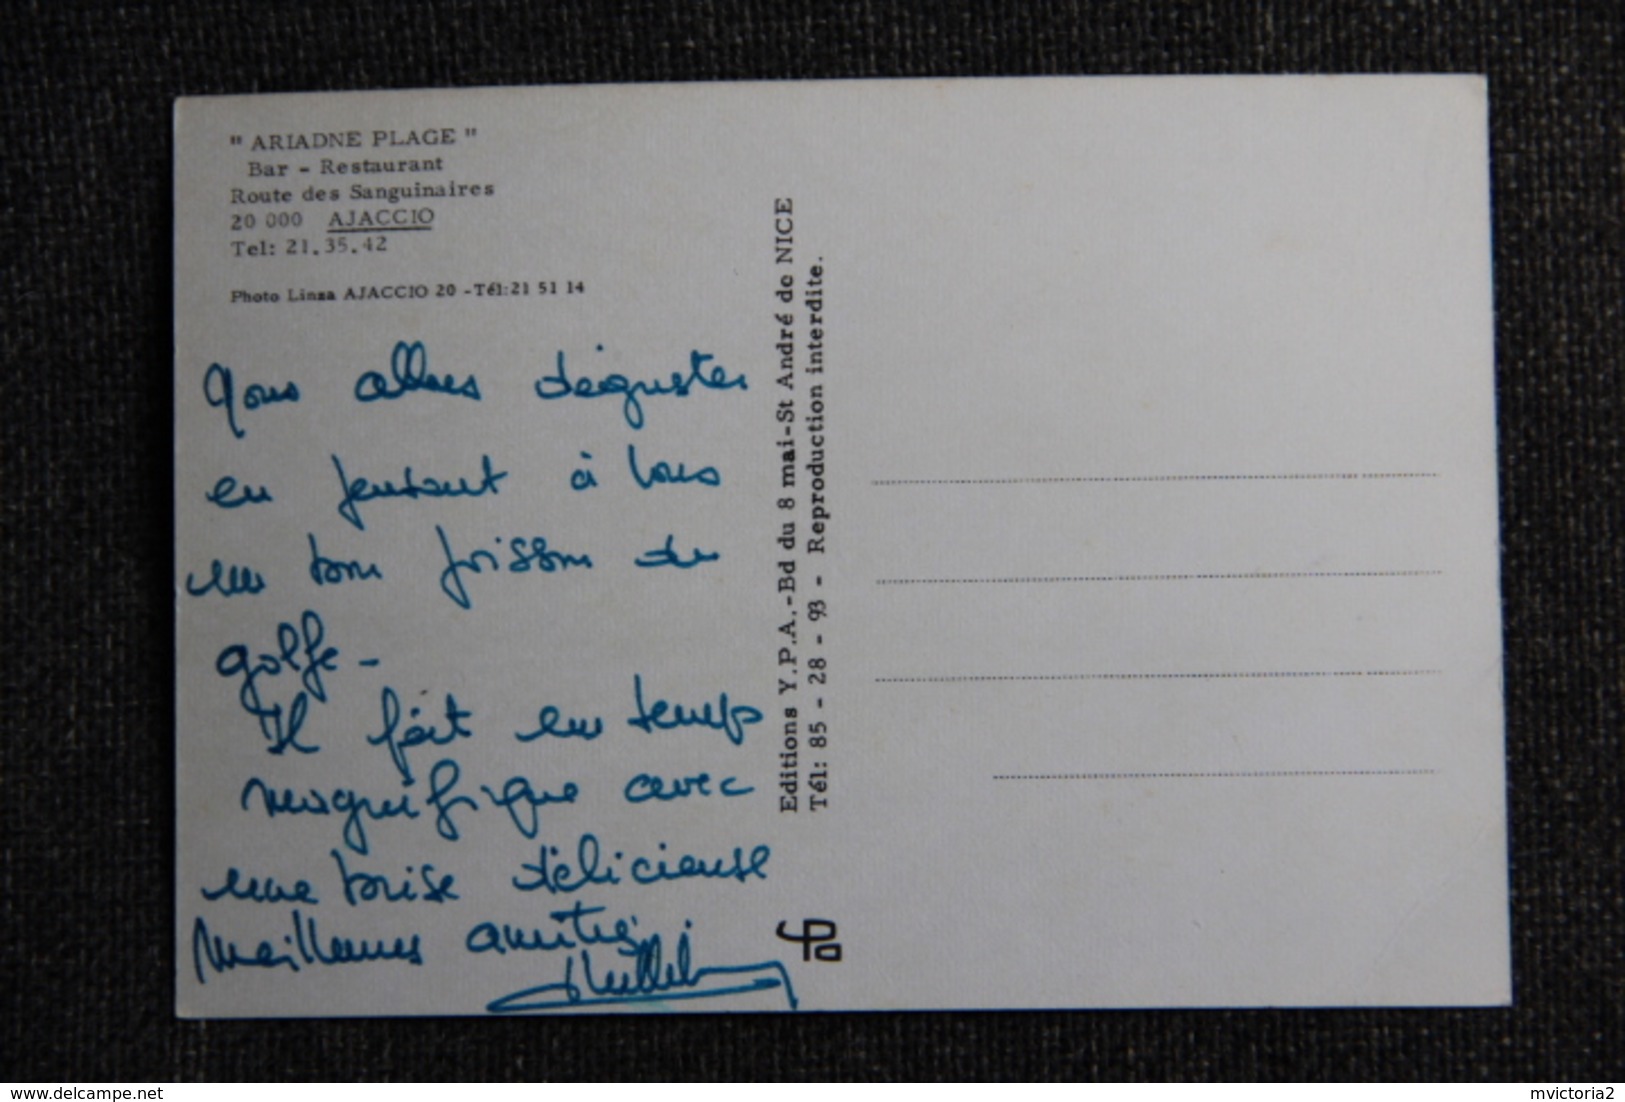 " ARIADNE PLAGE "
Bar - Restaurant
Route des Sanguinaires
20 000 AJACCIO
Tel: 21.35.42
Photo Linza AJACCIO 20 -Tél:21 51 14
Nous allons déguster
en pensant à vous
un bon poisson du
golfe -
Il fait un temps
magnifique avec
une brise délicieuse
Meilleures amitiés
Editions Y.P.A.-Bd du 8 mai-St André de NICE
Tél: 85 - 28 - 93 - Reproduction interdite.
delcampe.net
mvictoria2